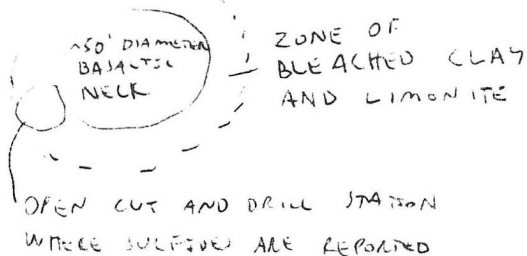 ~50' DIAMETER
BASALTIC
NECK
ZONE OF
BLEACHED CLAY
AND LIMONITE
OPEN CUT AND DRILL STATION
WHERE SULFIDES ARE REPORTED